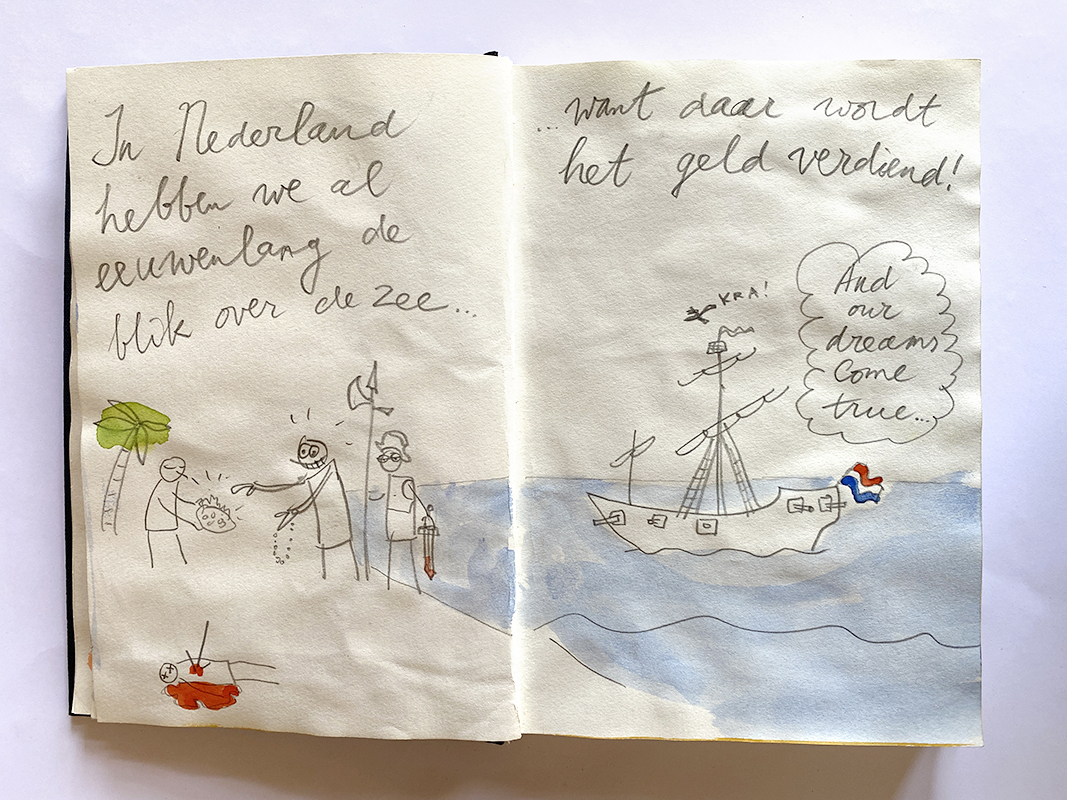 In Nederland
hebben we al
eeuwenlang de
blik over de zee...
...want daar wordt
het geld verdiend!
KRA!
And
our
dreams
come
true...